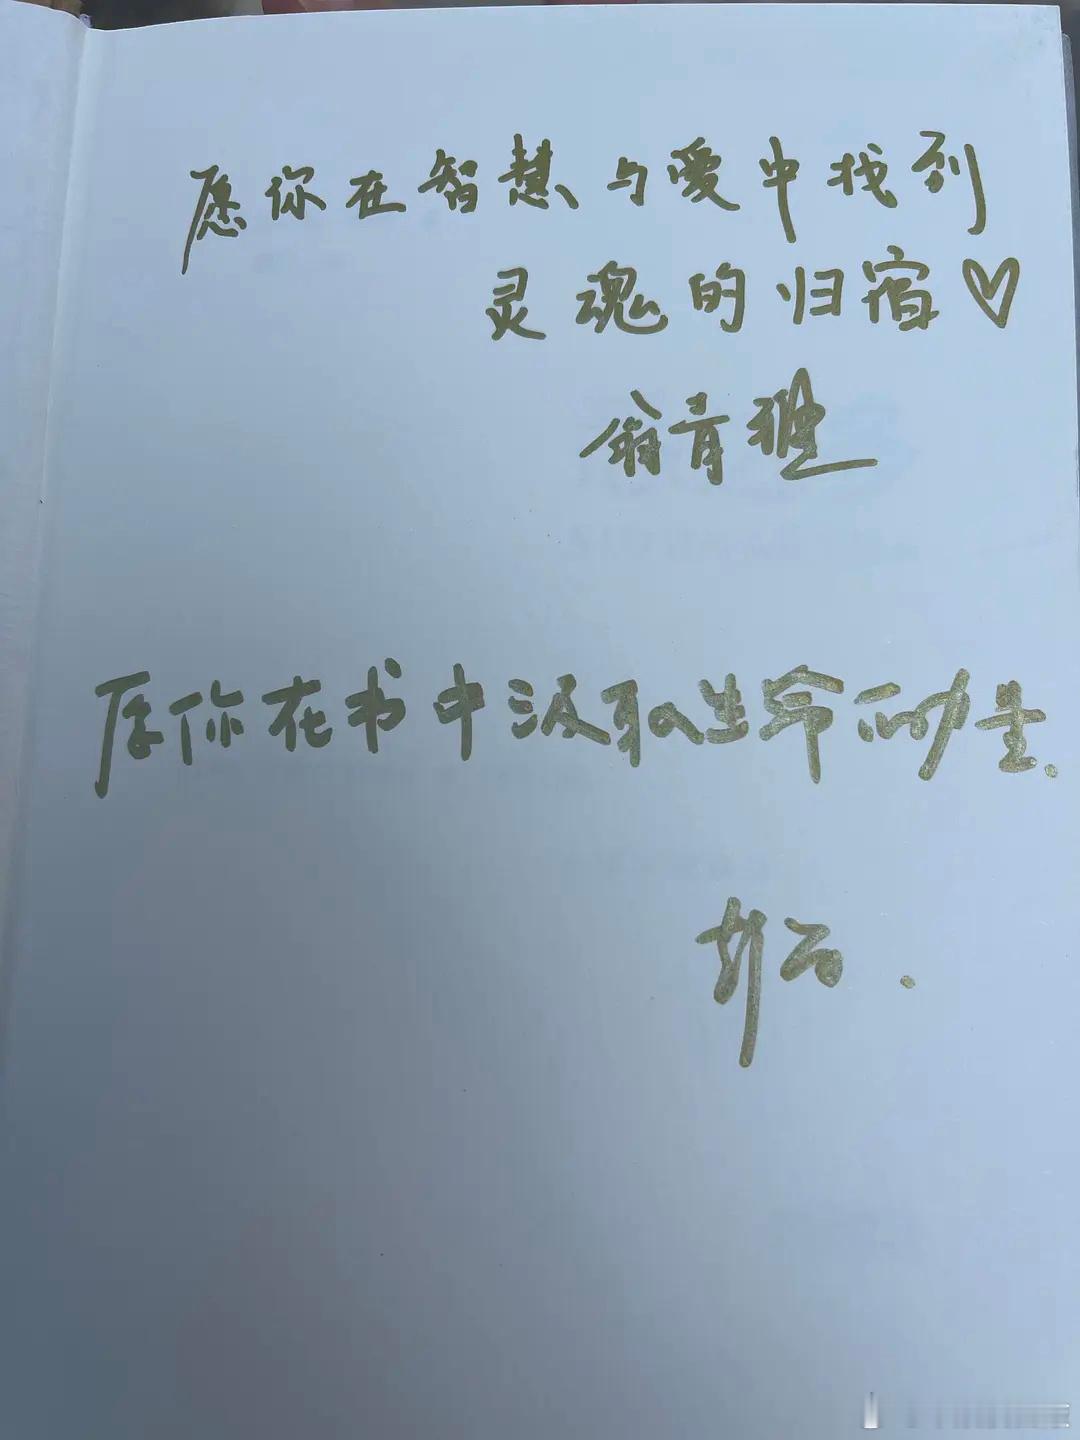 愿你在智慧与愛中找到
灵魂的归宿♡
翁青雅
愿你在书中汲取生命的力量.